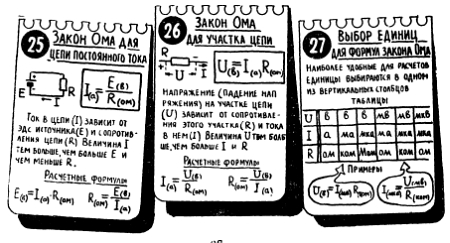 25
ЗАКОН ОМА ДЛЯ
ЦЕПИ ПОСТОЯННОГО ТОКА
E R I
I(а) = E(в) / R(ом)
ТОК В ЦЕПИ (I) ЗАВИСИТ ОТ
ЭДС ИСТОЧНИКА (E) И СОПРОТИВ-
ЛЕНИЯ ЦЕПИ (R) ВЕЛИЧИНА I
ТЕМ БОЛЬШЕ, ЧЕМ БОЛЬШЕ E И
ЧЕМ МЕНЬШЕ R.
РАСЧЕТНЫЕ ФОРМУЛЫ
E(в) = I(а) · R(ом) R(ом) = E(в) / I(а)
26
ЗАКОН ОМА
ДЛЯ УЧАСТКА ЦЕПИ
R
U I
U(в) = I(а) R(ом)
НАПРЯЖЕНИЕ (ПАДЕНИЕ НАП
РЯЖЕНИЯ) НА УЧАСТКЕ ЦЕПИ
(U) ЗАВИСИТ ОТ СОПРОТИВЛЕ-
НИЯ ЭТОГО УЧАСТКА (R) И ТОКА
В НЕМ (I) ВЕЛИЧИНА U ТЕМ БОЛЬ
ШЕ, ЧЕМ БОЛЬШЕ I И R
РАСЧЕТНЫЕ ФОРМУЛЫ
I(а) = U(в) / R(ом) R(ом) = U(в) / I(а)
27
ВЫБОР ЕДИНИЦ
ДЛЯ ФОРМУЛ ЗАКОНА ОМА
НАИБОЛЕЕ УДОБНЫЕ ДЛЯ РАСЧЕТОВ
ЕДИНИЦЫ ВЫБИРАЮТСЯ В ОДНОМ
ИЗ ВЕРТИКАЛЬНЫХ СТОЛБЦОВ
ТАБЛИЦЫ
U В В В МВ МВ МКВ
I А МА МКА МА МКА МКА
R ОМ КОМ МОМ ОМ КОМ ОМ
ПРИМЕРЫ